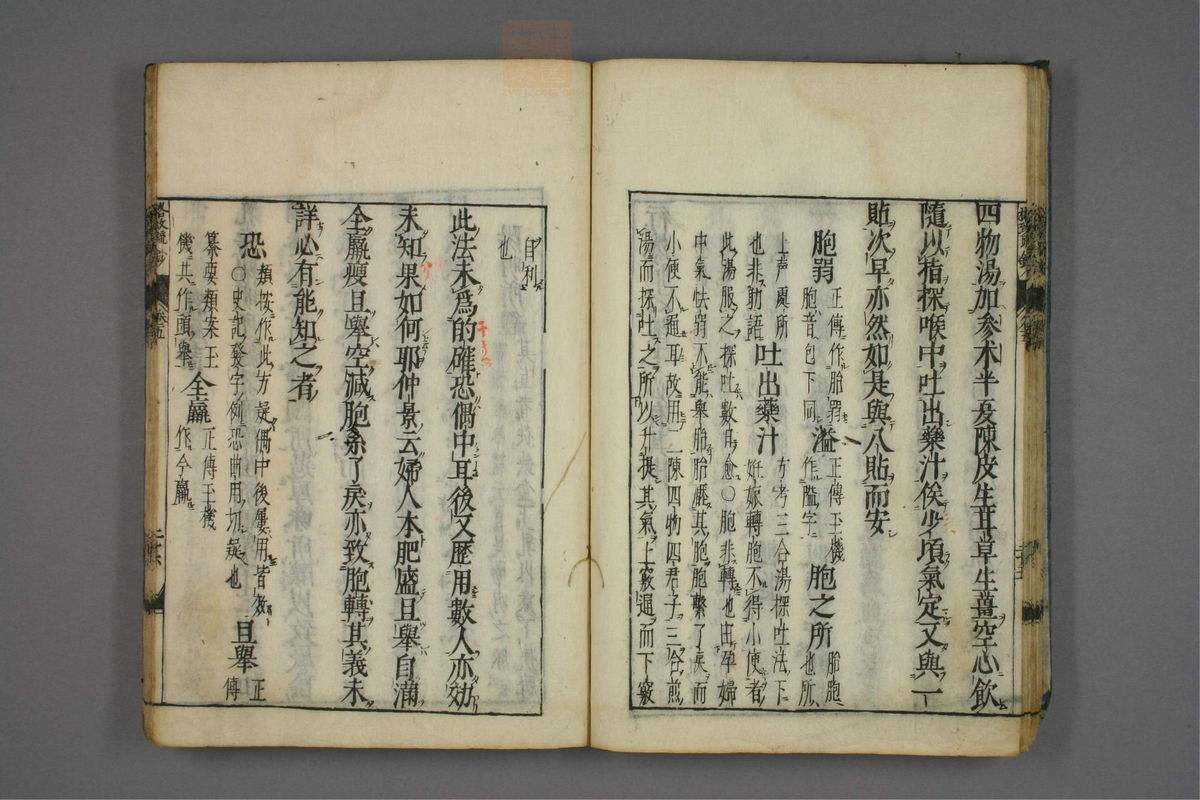 四物湯加參朮半夏陳皮生甘草生薑空心飲
隨以指探喉中吐出藥汁俟少頃氣定又與一
貼次早亦然如是與八貼而安
胞弱 正傳作胎弱 胞音包下同 溢 正傳玉機 作隘字 胞之所 胎胞 也所
上声處所 也非助語 吐出藥汁 方考三合湯探吐法下 妊娠轉胞不得小便者
此湯服之探吐數月愈○胞非轉也由孕婦
中氣怯弱不能舉胎胎壓其胞胞繫了戾而
小便不通耳故用二陳四物四君子三合煎
湯而探吐之所以升提其氣上竅通而下竅
自利
也
此法未爲的確恐偶中耳後又歷用數人亦効
未知果如何耶仲景云婦人本肥盛且舉自滿
全羸瘦且舉空減胞系了戾亦致胞轉其義未
詳必有能知之者
恐 類按作此方疑偶中後屢用皆效 ○史記發字例恐斷用切疑也 且舉 正 傳
纂要類案玉 機共作頭舉 全羸 正傳玉機 作今羸